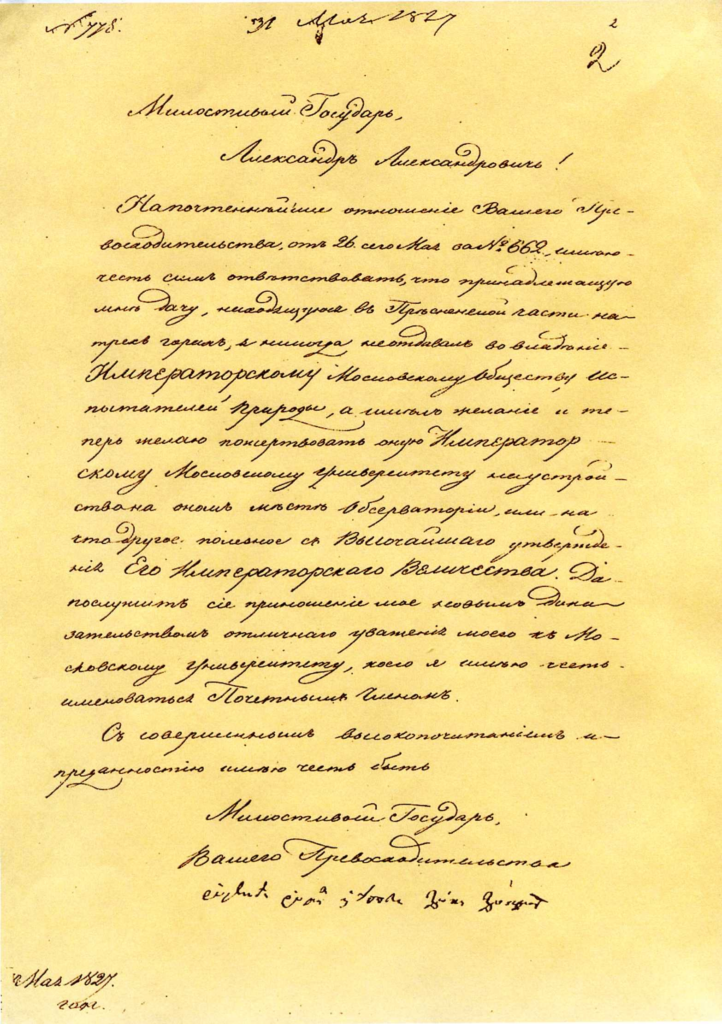 № 778.
31 Мая 1827
2
2
Милостивый Государь,
Александръ Александровичь!
На почтеннѣйшее отношеніе Вашего Пре-
восходительства, отъ 26. сего Мая за № 662, имѣю
честь симъ отвѣтствовать, что принадлежащую
мнѣ дачу, находящуюся въ Прѣсненской части на
трехъ горахъ, я никогда неотдавалъ во владѣніе
Императорскому Московскому Обществу Ис-
пытателей Природы, а имѣлъ желаніе и те-
перь желаю пожертвовать оную Император
скому Московскому Университету на устрой-
ство на ономъ мѣстѣ Обсерваторіи, или на
что другое полезное съ Высочайшаго утвержде-
нія Его Императорскаго Величества. Да
послужитъ сіе приношеніе мое новымъ дока
зательствомъ отличнаго уваженія моего къ Мо-
сковскому Университету, коего я имѣю честь
именоваться Почетнымъ Членомъ.
Съ совершеннымъ высокопочитаніемъ и
преданностію имѣю честь быть
Милостивый Государь,
Вашего Превосходительства
Мая 1827.
года.